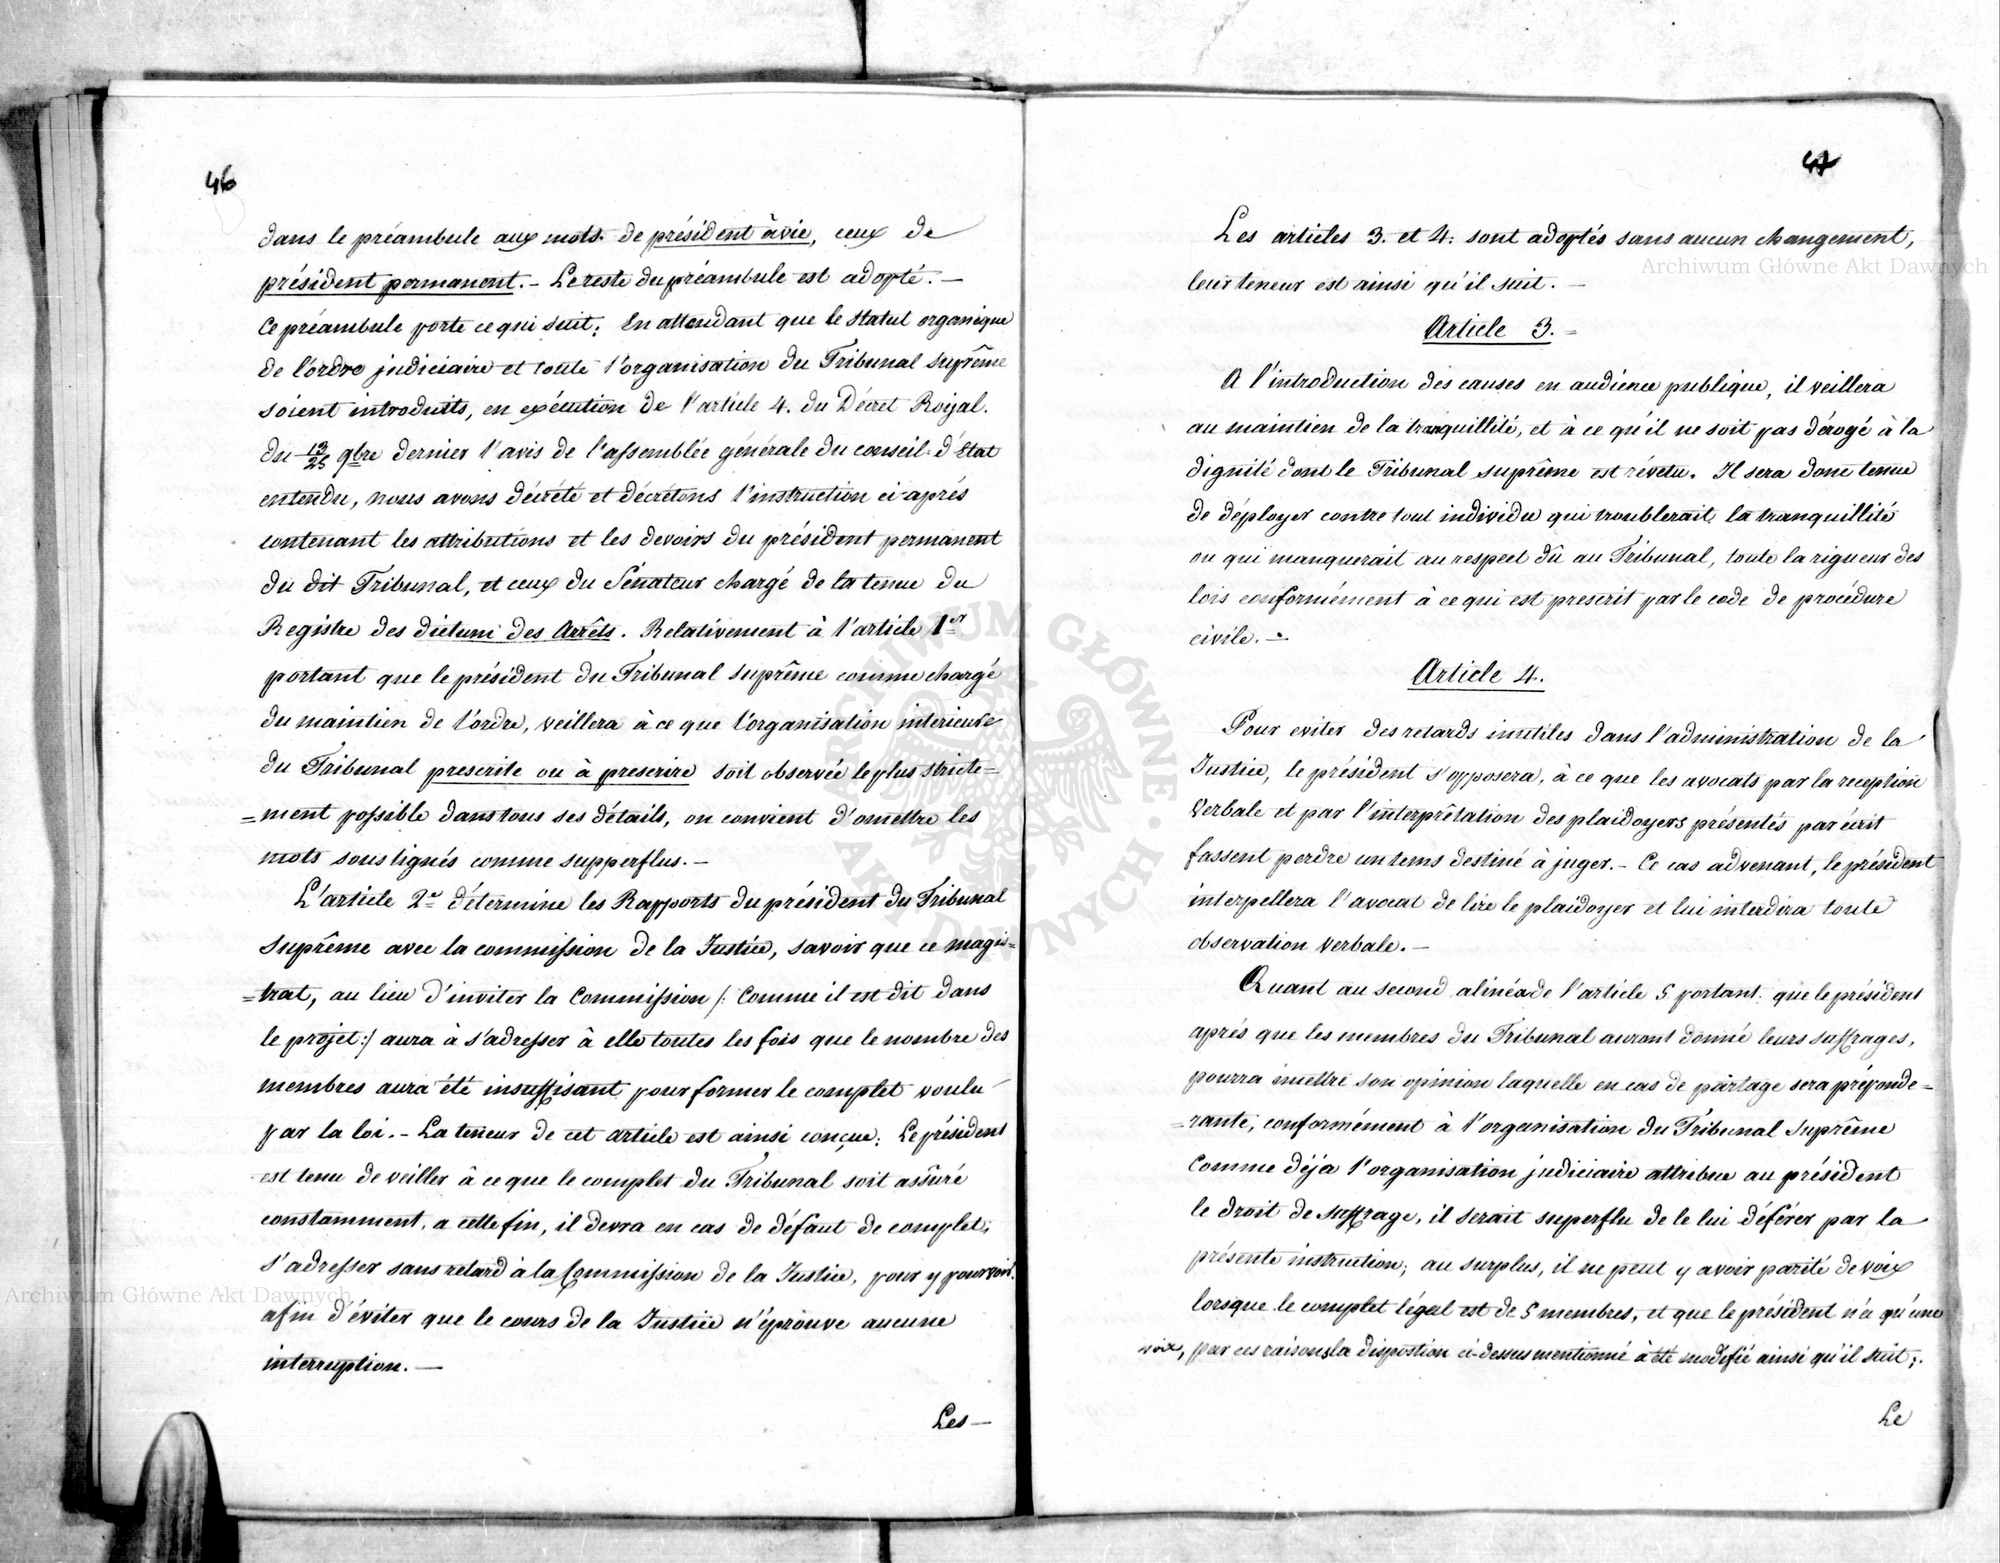 46
dans le préambule aux mots de président à vie, ceux de
président permanent. - Le reste du préambule est adopté. -
Ce préambule porte ce qui suit: En attendant que le statut organique
de l'ordre judiciaire et toute l'organisation du Tribunal Suprême
soient introduits, en exécution de l'article 4. du Décret Royal.
du 13/25 9bre dernier l'avis de l'assemblée générale du conseil d'État
entendu, nous avons décrété et décrétons l'instruction ci-après
contenant les attributions et les devoirs du président permanent
du dit Tribunal, et ceux du Sénateur chargé de la tenue du
Registre des dictum des Arrêts. Relativement à l'article 1er
portant que le président du Tribunal Suprême comme chargé
du maintien de l'ordre, veillera à ce que l'organisation interieure
du Tribunal prescrite ou à prescrire soit observée le plus stricte=
=ment possible dans tous ses détails, on convient d'omettre les
mots souslignés comme supperflus. -
L'article 2e détermine les Rapports du président du Tribunal
Suprême avec la commission de la Justice, savoir que ce magis=
=trat, au lieu d'inviter la Commission /: Comme il est dit dans
le projet:/ aura à s'adresser à elle toutes les fois que le nombre des
membres aura été insuffisant pour former le complet voulu
par la loi. - La teneur de cet article est ainsi conçue: Le président
est tenu de veiller à ce que le complet du Tribunal soit assûré
constamment, a cette fin, il devra en cas de défaut de complet,
s'adresser sans retard à la Commission de la Justice, pour y pourvoir.
afin d'éviter que le cours de la Justice n'éprouve aucune
interruption. -
Les -
47
Les articles 3. et 4. sont adoptés sans aucun changement,
leur teneur est ainsi qu'il suit. -
Article 3. =
A l'introduction des causes en audience publique, il veillera
au maintien de la tranquillité, et à ce qu'il ne soit pas dérogé à la
dignité dont le Tribunal suprême est révetu. Il sera donc tenue
de déployer contre tout individu qui troublerait la tranquillité
ou qui manquerait au respect dû au Tribunal, toute la rigueur des
lois conformément à ce qui est prescrit par le code de procédure
civile. -
Article 4.
Pour eviter des retards inutiles dans l'administration de la
Justice, le président s'opposera, à ce que les avocats par la reception
Verbale et par l'interprêtation des plaidoyers présentés par écrit
fassent perdre un tems destiné à juger. - Ce cas advenant, le président
interpellera l'avocat de lire le plaidoyer et lui interdira toute
observation verbale. -
Quant au second alinéa de l'article 5 portant: que le président
aprés que les membres du Tribunal auront donné leurs suffrages,
pourra émettre son opinion laquelle en cas de partage sera préponde=
=rante, conformément à l'organisation du Tribunal Suprême
Comme déja l'organisation judiciaire attribue au président
le droit de suffrage, il serait superflu de le lui déférer par la
présente instruction; au surplus, il ne peut y avoir parité de voix
lorsque le complet légal est de 5 membres, et que le président n'a qu'une
voix, par ces raisons la dispostion ci-dessus mentionné à été modifié ainsi qu'il suit;
Le
Archiwum Główne Akt Dawnych
Archiwum Główne Akt Dawnych
ARCHIWUM GŁÓWNE AKT DAWNYCH